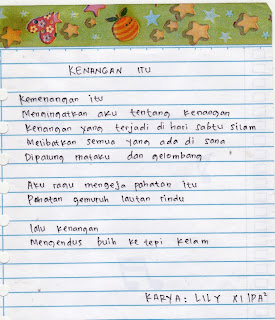 KENANGAN ITU
Kemenangan itu
Mengingatkan aku tentang kenangan
Kenangan yang terjadi di hari sabtu silam
Melibatkan semua yang ada di sana
Dipalung mataku dan gelombang
Aku ragu mengeja pahatan itu
Pahatan gemuruh lautan rindu
lalu kenangan
Mengendus buih ke tepi kelam
KARYA: LILY XI IPA²